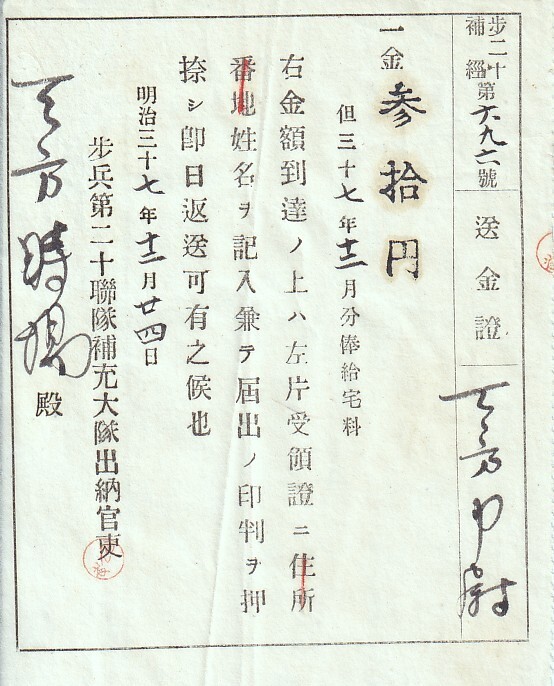 歩二十補經第六九六號
送金證
天方中尉
一金参拾円
但三十七年十二月分俸給宅料
右金額到達ノ上ハ左片受領證ニ住所
番地姓名ヲ記入兼テ届出ノ印判ヲ押
捺シ卽日返送可有之候也
明治三十七年十二月廿四日
歩兵第二十聯隊補充大隊出納官吏
天方 殿